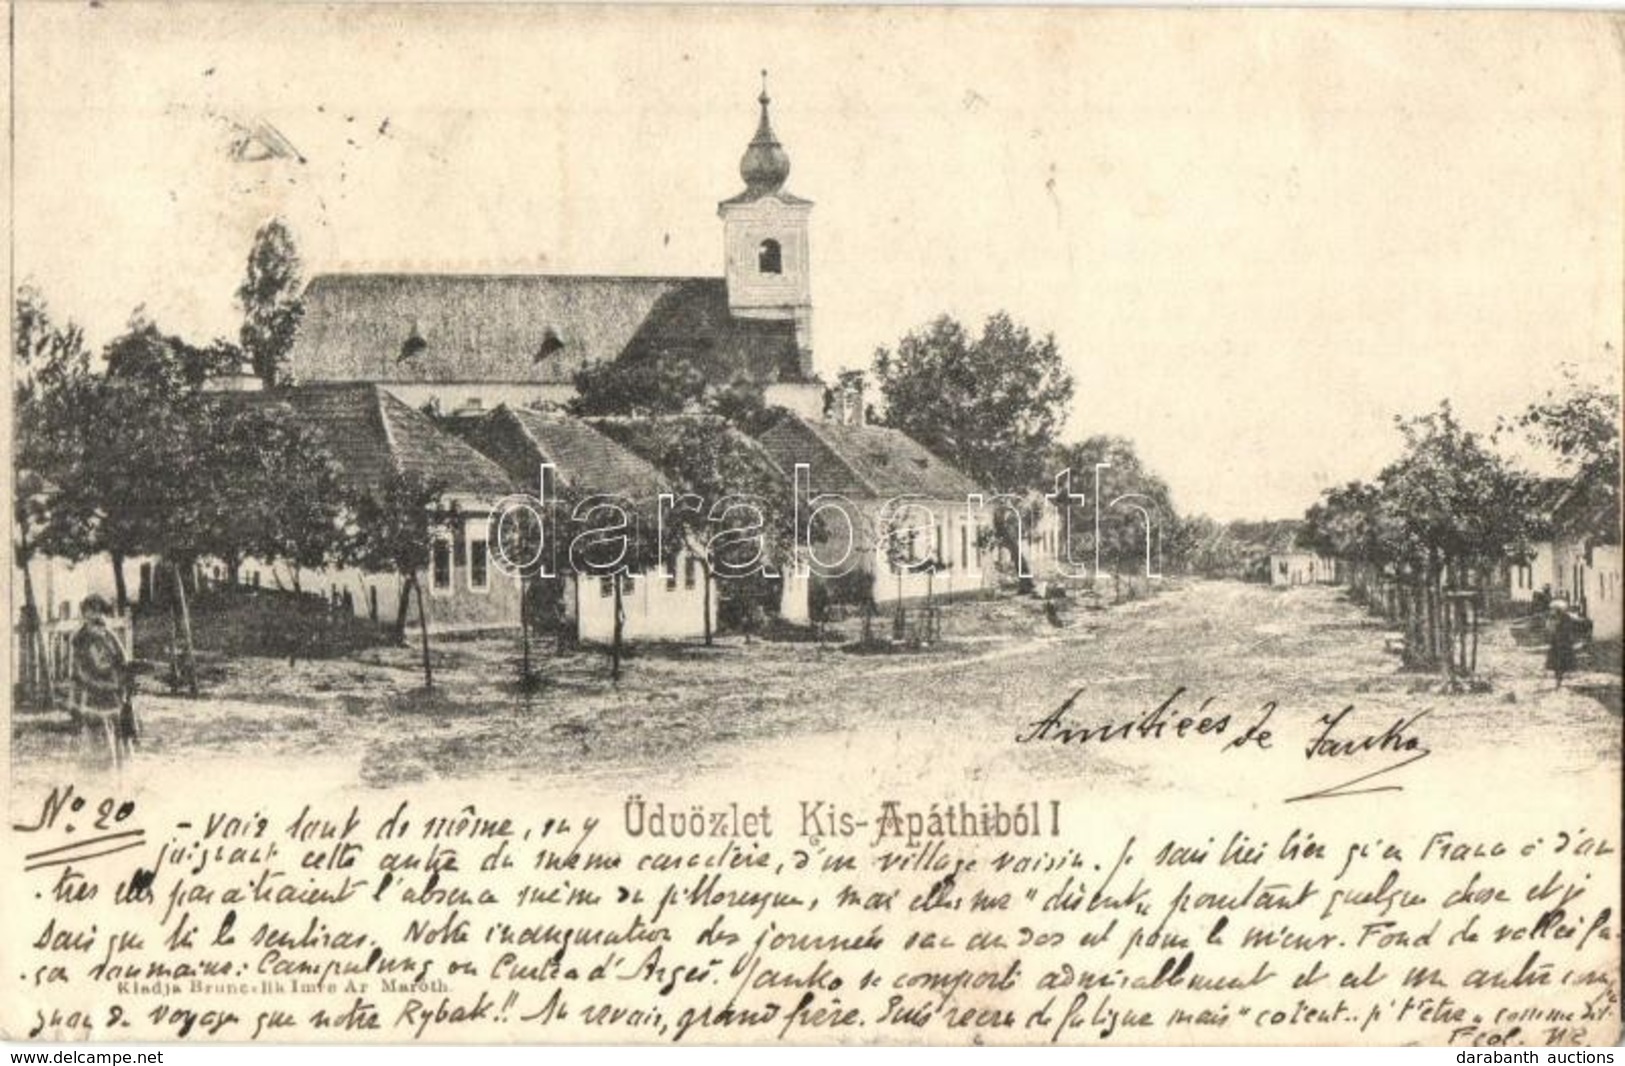 Amitiées de Janko
Üdvözlet Kis-Apáthiból!
No. 20
– vais tout de même, en y
joignant cette autre du même caractère, d'un village voisin. Je sais bien qu'en d'au
tres elles paraîtraient l'absence même du pittoresque, mais elles me "disent" pourtant quelque chose et je
sais que tu le sentiras. Notre inauguration des journées sac au dos est pour le mieux. Fond de vallées fa
çon roumaine: Campulung ou Curtea d'Arges. Janko se comporte admirablement et est un autre com
Kiadja Brunczlik Imre Ar Maróth.
gnon de voyage que notre Rybak!! Au revoir, grand frère. Suis de fatigue mais "content.. p't'être" comme dit
darabanth
darabanth auctions